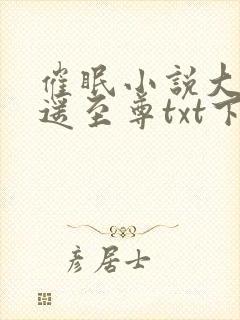 催眠小説大
遥至尊txt下
彦居士